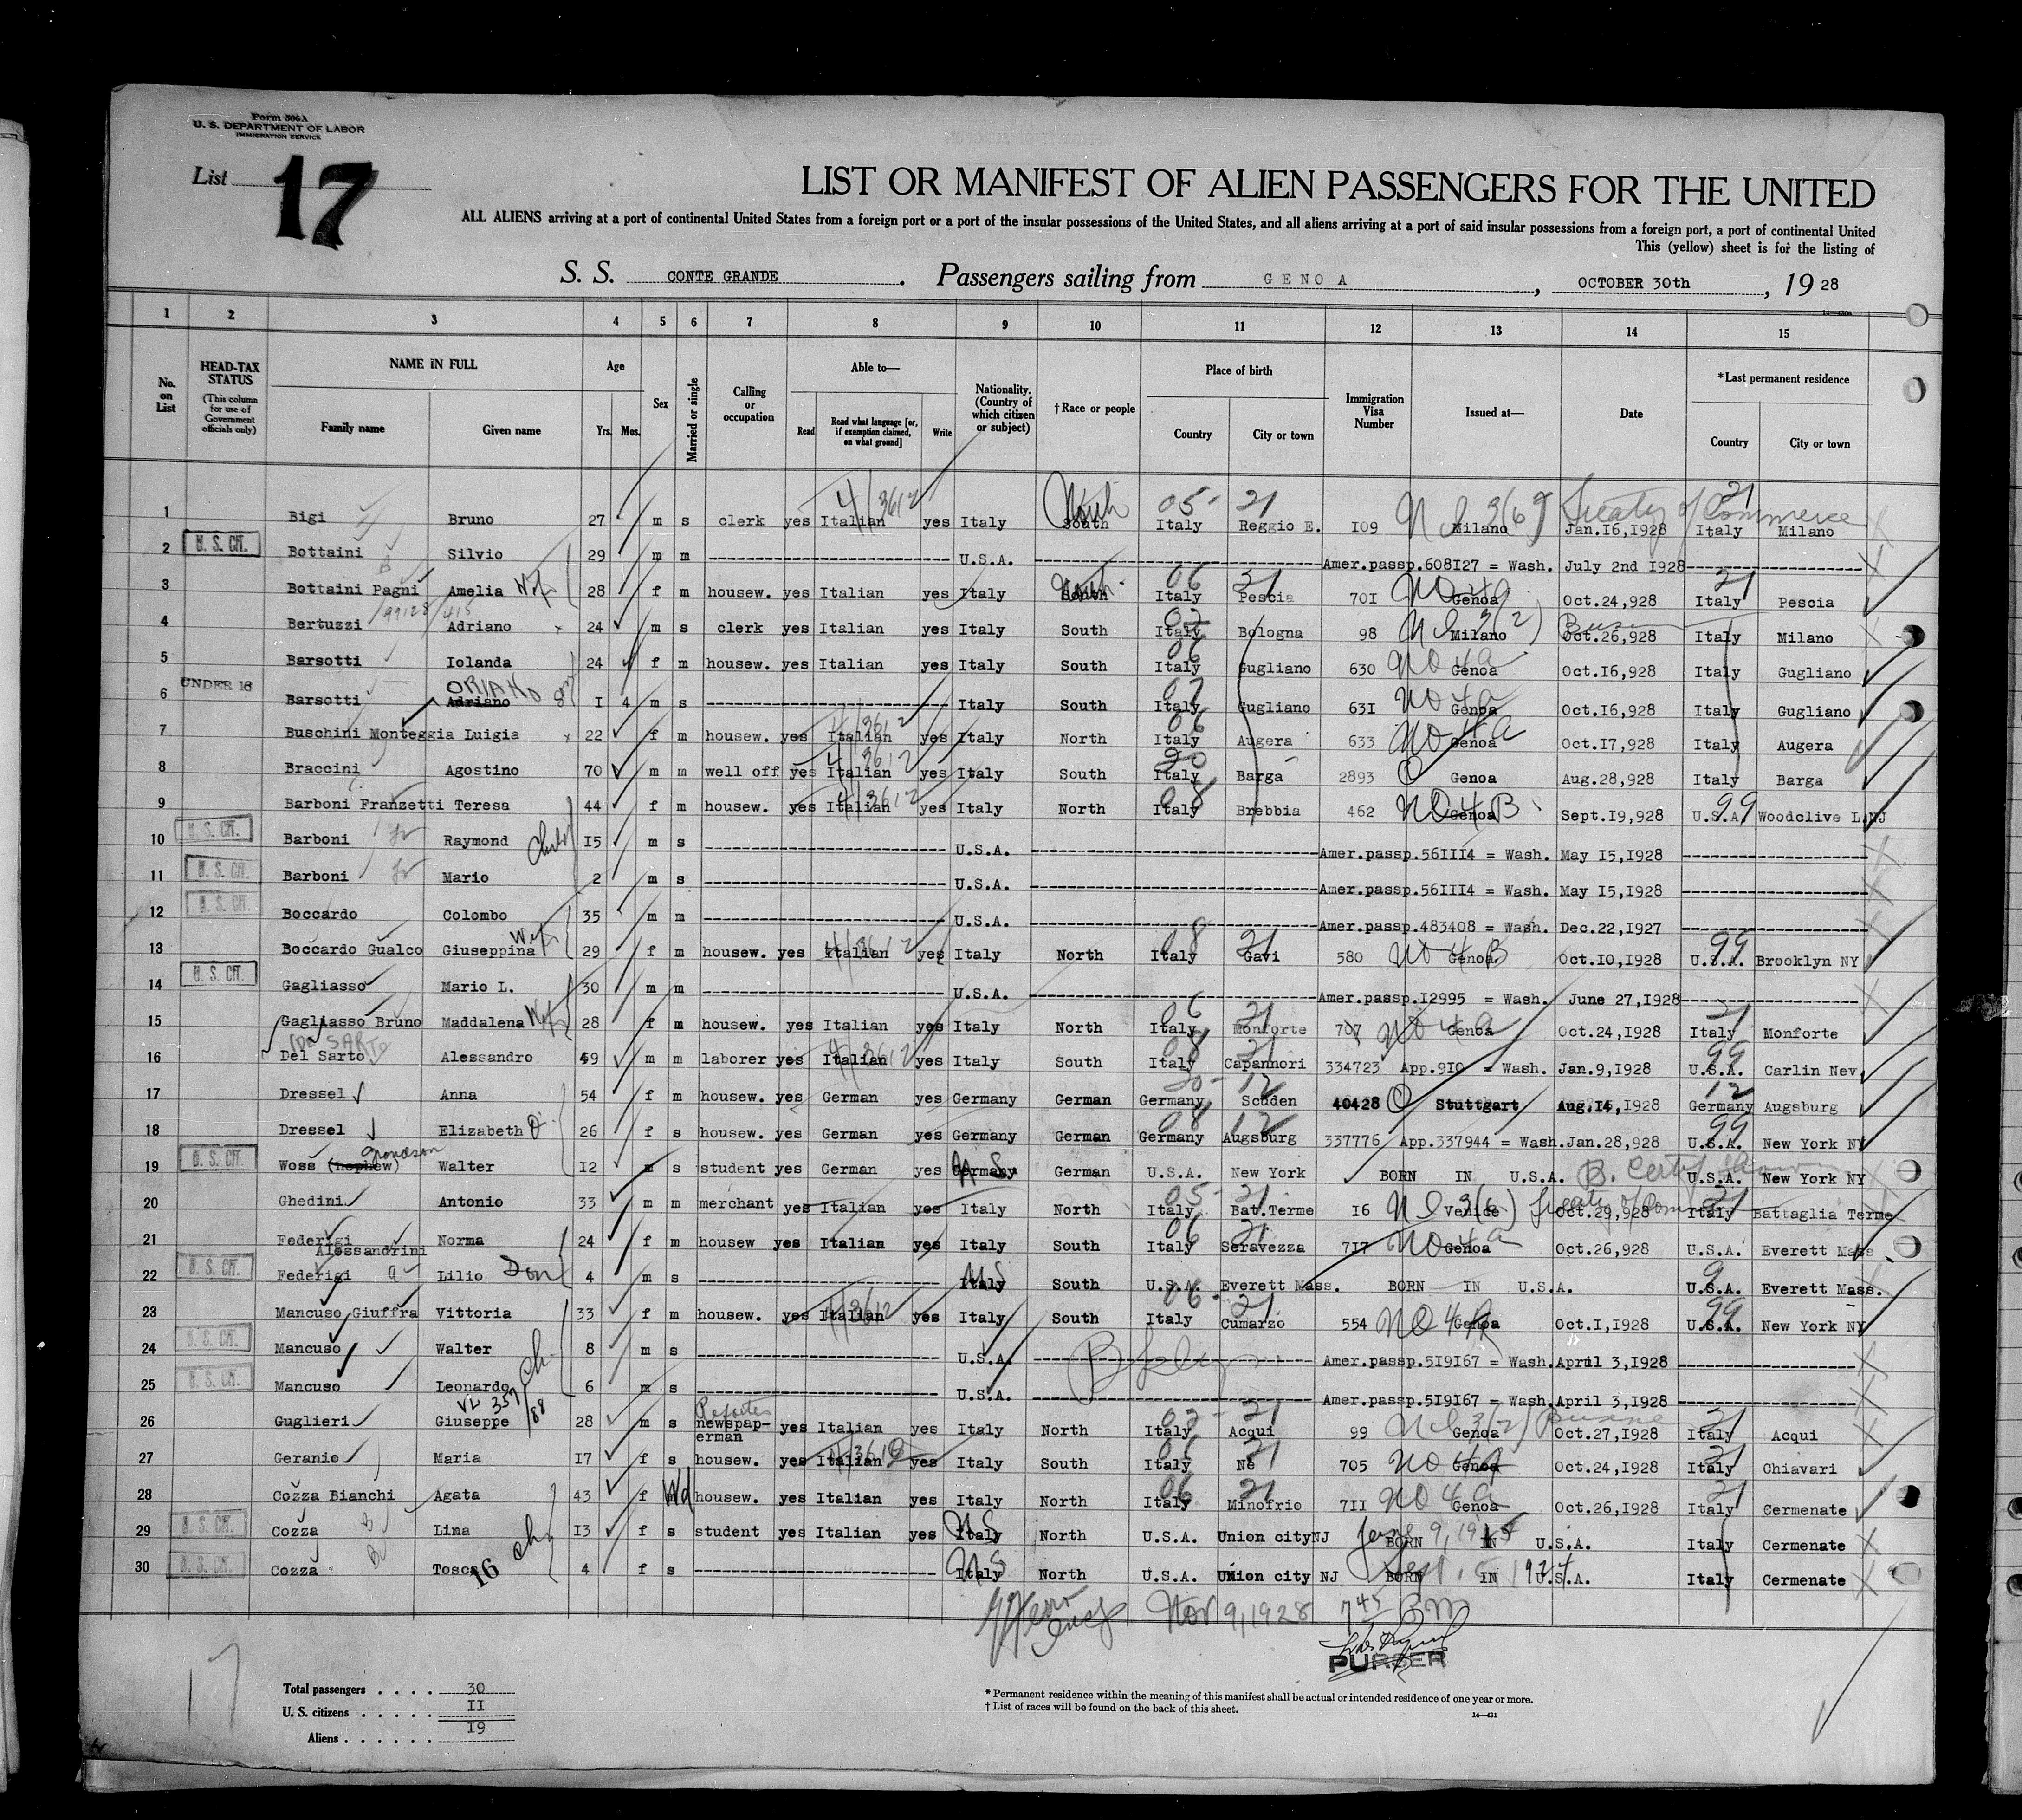 Form 500A
U. S. DEPARTMENT OF LABOR
IMMIGRATION SERVICE
List 17
LIST OR MANIFEST OF ALIEN PASSENGERS FOR THE UNITED
ALL ALIENS arriving at a port of continental United States from a foreign port or a port of the insular possessions of the United States, and all aliens arriving at a port of said insular possessions from a foreign port, a port of continental United
This (yellow) sheet is for the listing of
S. S. CONTE GRANDE. Passengers sailing from GENOA, OCTOBER 30th, 1928
1 2 3 4 5 6 7 8 9 10 11 12 13 14 15
No. on List
HEAD-TAX STATUS (This column for use of Government officials only)
NAME IN FULL Family name Given name
Age Yrs. Mos.
Sex
Married or single
Calling or occupation
Able to— Read Read what language [or, if exemption claimed, on what ground] Write
Nationality. (Country of which citizen or subject)
†Race or people
Place of birth Country City or town
Immigration Visa Number
Issued at—
Date
*Last permanent residence Country City or town
1 Bigi Bruno 27 m s clerk yes Italian 4/3612 yes Italy South North Italy 05 - 21 Reggio E. 109 Milano Jan.16,1928 Treaty of Commerce Italy 21 Milano
2 U. S. CIT. Bottaini Silvio 29 m m U.S.A. Amer.passp.608127 = Wash. July 2nd 1928
3 Bottaini Pagni Amelia Wf 28 f m housew. yes Italian yes Italy South Italy 06 21 Pescia 701 Genoa NO 4a Oct.24,928 Italy 21 Pescia
4 Bertuzzi 99128/415 Adriano x 24 m s clerk yes Italian yes Italy South Italy Bologna 98 Milano Oct.26,928 Italy Milano
5 Barsotti Iolanda 24 f m housew. yes Italian yes Italy South Italy 06 Gugliano 630 Genoa NO 4a Oct.16,928 Italy Gugliano
6 UNDER 16 Barsotti Adriano ORIANO 1 4 m s Italy South Italy Gugliano 631 Genoa NO 4a Oct.16,928 Italy Gugliano
7 Buschini Monteggia Luigia x 22 f m housew. yes Italian 4/3612 yes Italy North Italy 06 Augera 633 Genoa NO 4a Oct.17,928 Italy Augera
8 Braccini Agostino 70 m m well off yes Italian 4/3612 yes Italy South Italy 20 Barga 2893 Genoa Aug.28,928 Italy Barga
9 Barboni Franzetti Teresa 44 f m housew. yes Italian 4/3612 yes Italy North Italy 08 Brebbia 462 Genoa NO 4B Sept.19,928 U.S.A. 99 Woodclive L.NJ
10 U. S. CIT. Barboni Raymond 15 m s U.S.A. Amer.passp.561114 = Wash. May 15,1928
11 U. S. CIT. Barboni Mario 2 m s U.S.A. Amer.passp.561114 = Wash. May 15,1928
12 U. S. CIT. Boccardo Colombo 35 m m U.S.A. Amer.passp.483408 = Wash. Dec.22,1927
13 Boccardo Gualco Giuseppina Wf 29 f m housew. yes Italian 4/3612 yes Italy North Italy 08 21 Gavi 580 Genoa NO 4B Oct.10,1928 U.S.A. 99 Brooklyn NY
14 U. S. CIT. Gagliasso Mario L. 30 m m U.S.A. Amer.passp.12995 = Wash. June 27,1928
15 Gagliasso Bruno Maddalena Wf 28 f m housew. yes Italian yes Italy North Italy 06 21 Monforte 707 Genoa NO 4a Oct.24,1928 Italy 21 Monforte
16 Del Sarto Alessandro 59 m m laborer yes Italian 4/3612 yes Italy South Italy 08 21 Capannori 334723 App.910 = Wash. Jan.9,1928 U.S.A. 99 Carlin Nev.
17 Dressel Anna 54 f m housew. yes German yes Germany German Germany 20 - 12 Scuden 40428 Stuttgart Aug.14,1928 Germany 12 Augsburg
18 Dressel Elizabeth D. 26 f s housew. yes German yes Germany German Germany 08 12 Augsburg 337776 App.337944 = Wash.Jan.28,928 U.S.A. 99 New York NY
19 U. S. CIT. Woss (nephew) grandson Walter 12 m s student yes German yes Germany German U.S.A. New York BORN IN U.S.A. B. Certif U.S.A. New York NY
20 Ghedini Antonio 33 m m merchant yes Italian yes Italy North Italy 05 - 21 Bat.Terme 16 Venice Oct.29,928 Italy Battaglia Terme
21 Federigi Alessandrini Norma 24 f m housew yes Italian yes Italy South Italy 06 21 Seravezza 717 Genoa NO 4a Oct.26,928 U.S.A. Everett Mass
22 U. S. CIT. Federigi Lilio Son 4 m s Italy South U.S.A. Everett Mass. BORN IN U.S.A. U.S.A. Everett Mass.
23 Mancuso Giuffra Vittoria 33 f m housew. yes Italian 4/3612 yes Italy South Italy 06 - 21 Cumarzo 554 Genoa Oct.1,1928 U.S.A. 99 New York NY
24 U. S. CIT. Mancuso Walter 8 m s U.S.A. Amer.passp.519167 = Wash.April 3,1928
25 U. S. CIT. Mancuso Leonardo ch 6 m s U.S.A. Amer.passp.519167 = Wash.April 3,1928
26 Guglieri Giuseppe 28 m s Reporter newspaperman yes Italian yes Italy North Italy 21 Acqui 99 Genoa Oct.27,1928 Italy 21 Acqui
27 Geranio Maria 17 f s housew. yes Italian yes Italy South Italy 06 21 Ne 705 Genoa NO Oct.24,1928 Italy 21 Chiavari
28 Cozza Bianchi Agata 43 f Wd housew. yes Italian yes Italy North Italy 06 Minofrio 711 Genoa NO 4a Oct.26,1928 Italy 21 Cermenate
29 U. S. CIT. Cozza Lina ch 13 f s student yes Italian yes Italy North U.S.A. Union cityNJ BORN IN U.S.A. Italy Cermenate
30 U. S. CIT. Cozza Tosca 16 4 f s Italy North U.S.A. Union city NJ BORN IN U.S.A. Italy Cermenate
Nov 9, 1928 7 45 PM
PURSER
17
Total passengers . . . . 30
U. S. citizens . . . . . 11
Aliens . . . . . . 19
* Permanent residence within the meaning of this manifest shall be actual or intended residence of one year or more.
† List of races will be found on the back of this sheet.
14—431